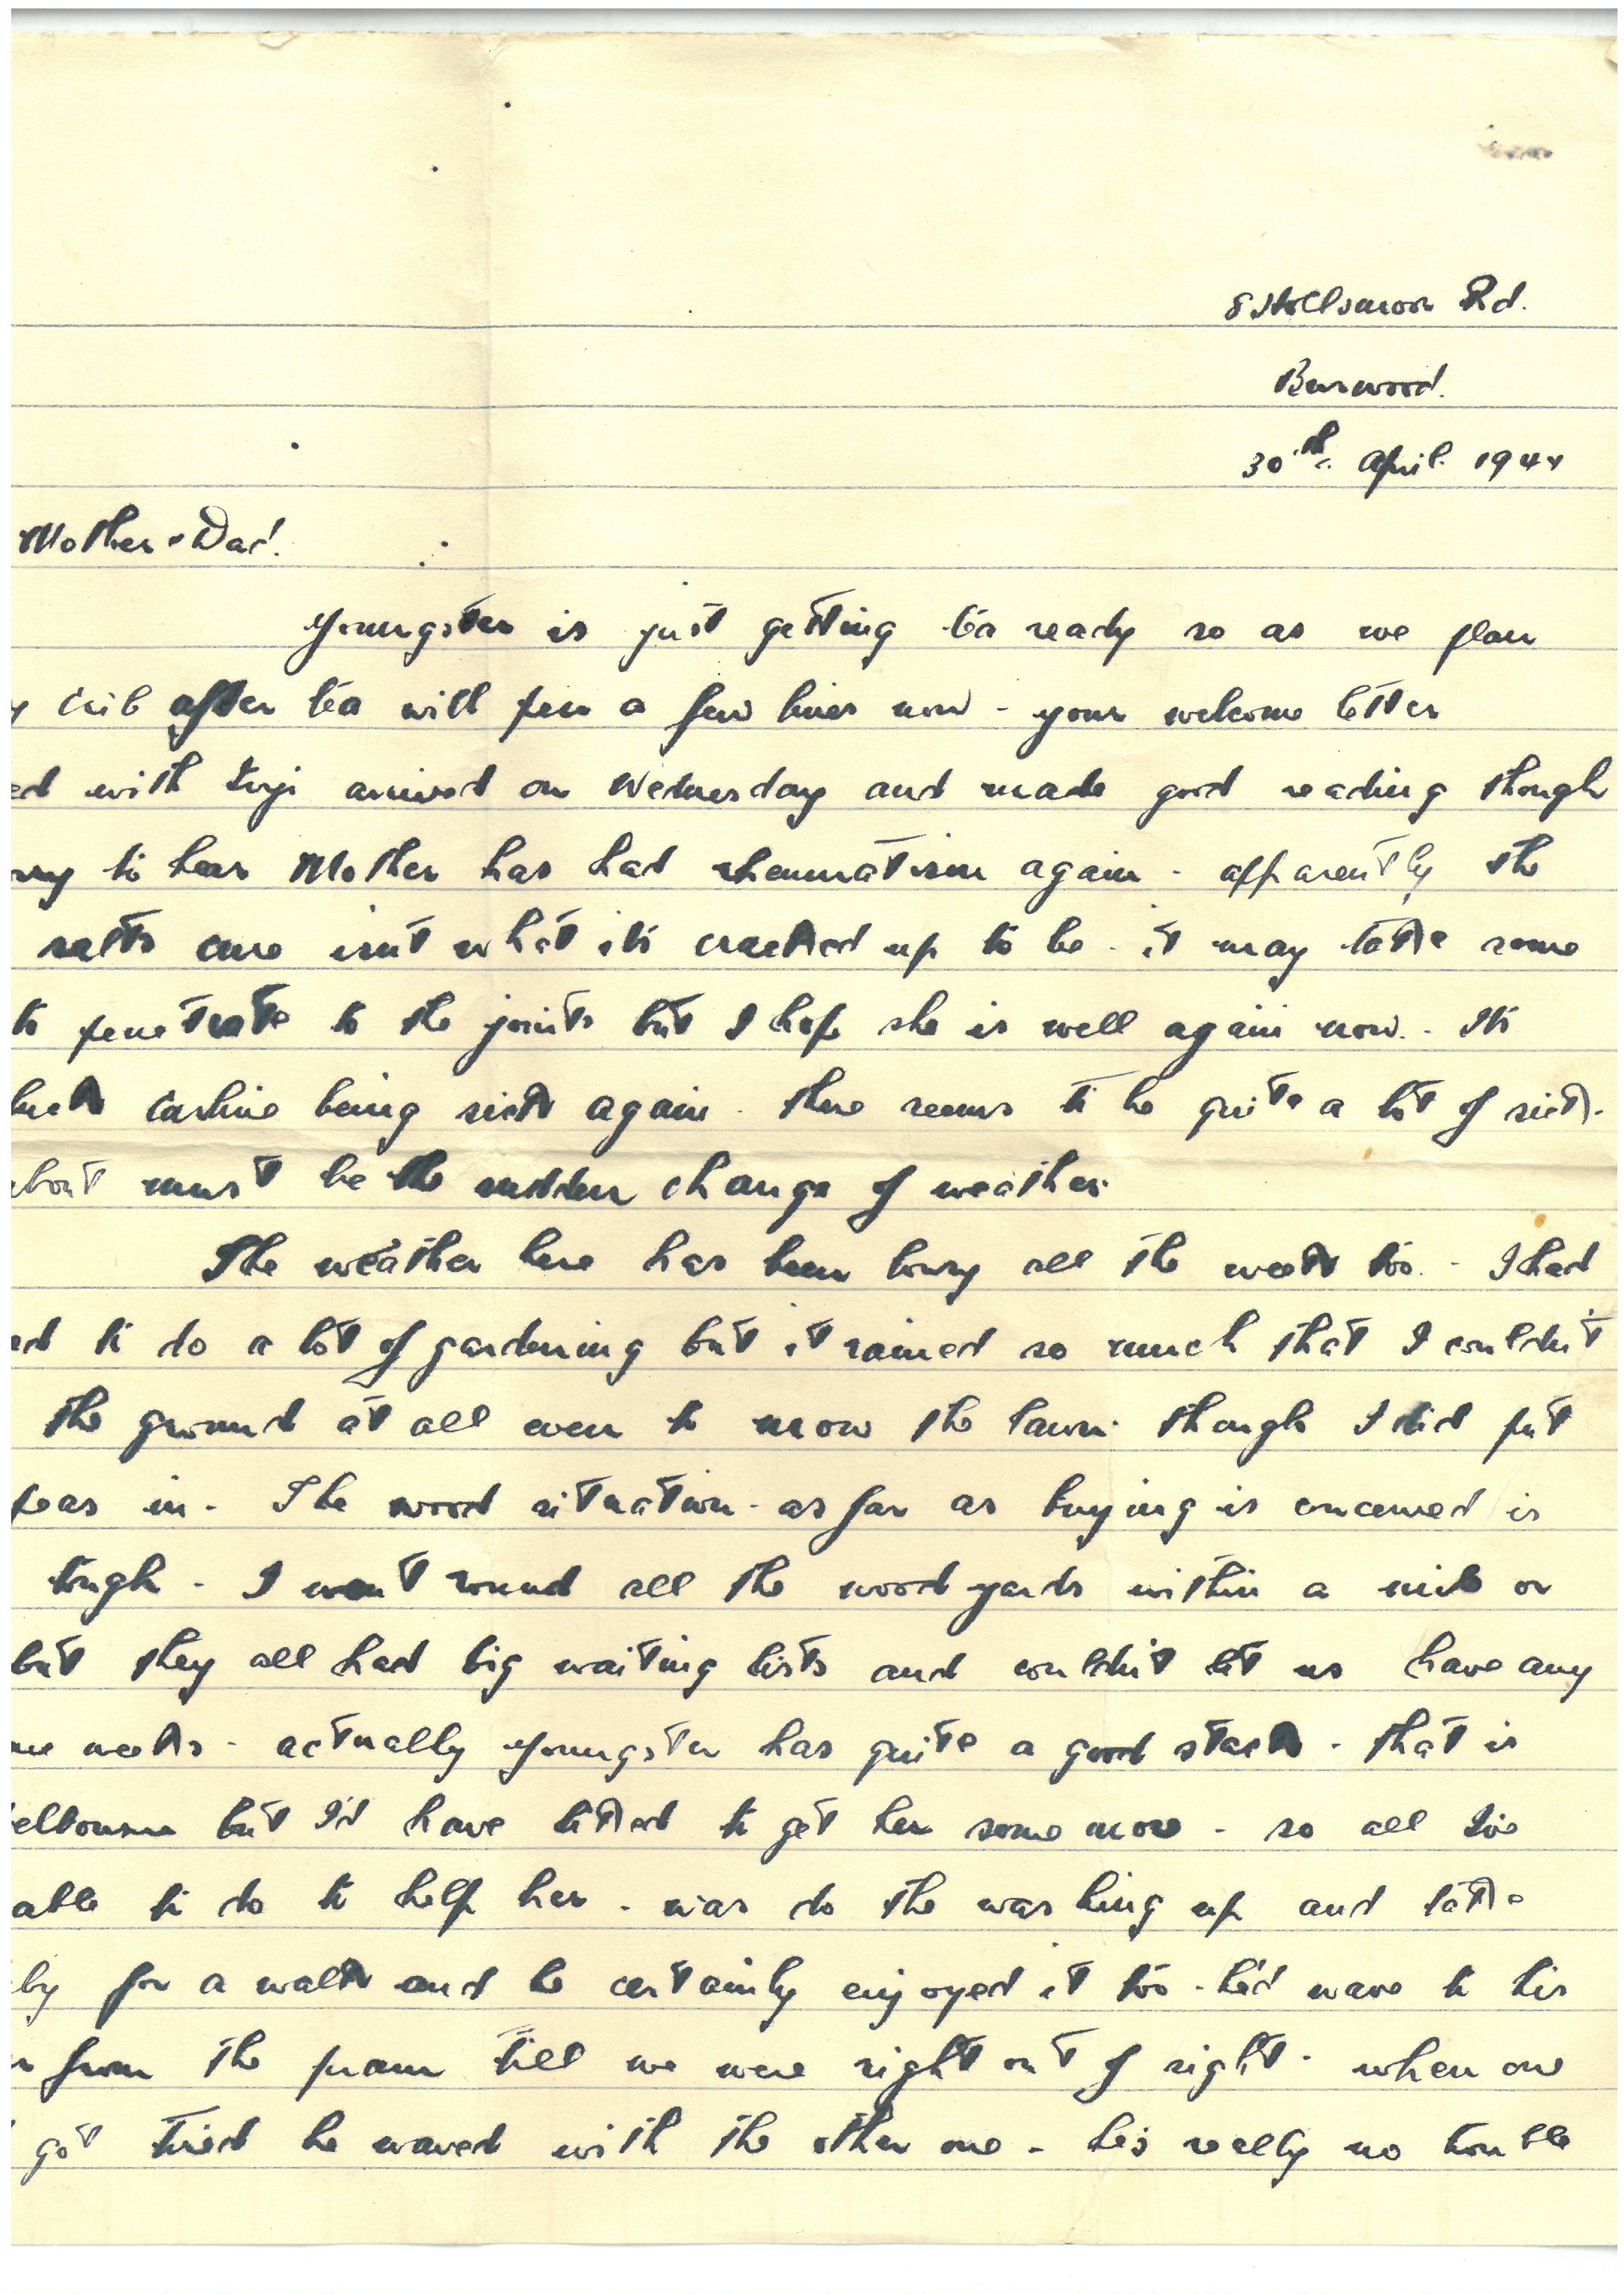 Rd.
Burwood.
30th. April. 1944
Mother & Dad.
Youngster is just getting tea ready so as we plan
crib after tea will pen a few lines now - your welcome letter
ed with arrived on Wednesday and made good reading though
rry to hear Mother has had rheumatism again - apparently the
salts cure isn't what its cracked up to be - it may take some
to penetrate to the joints but I hope she is well again now. - Its
luck being sick again - there seems to be quite a lot of sick-
about must be the sudden change of weather.
The weather here has been lousy all the week too. - I had
ed to do a lot of gardening but it rained so much that I couldn't
the ground at all even to mow the lawn. though I did put
peas in - The wood situation - as far as buying is concerned is
tough - I went round all the wood yards within a mile or
but they all had big waiting lists and couldn't let us have any
me weeks - actually youngster has quite a good stack - that is
elbourne but I'd have liked to get her some more - so all I've
able to do to help her - was do the washing up and take
by for a walk and he certainly enjoyed it too - he'd wave to his
from the pram till we were right out of sight - when one
got tired he waved with the other one - he's really no trouble